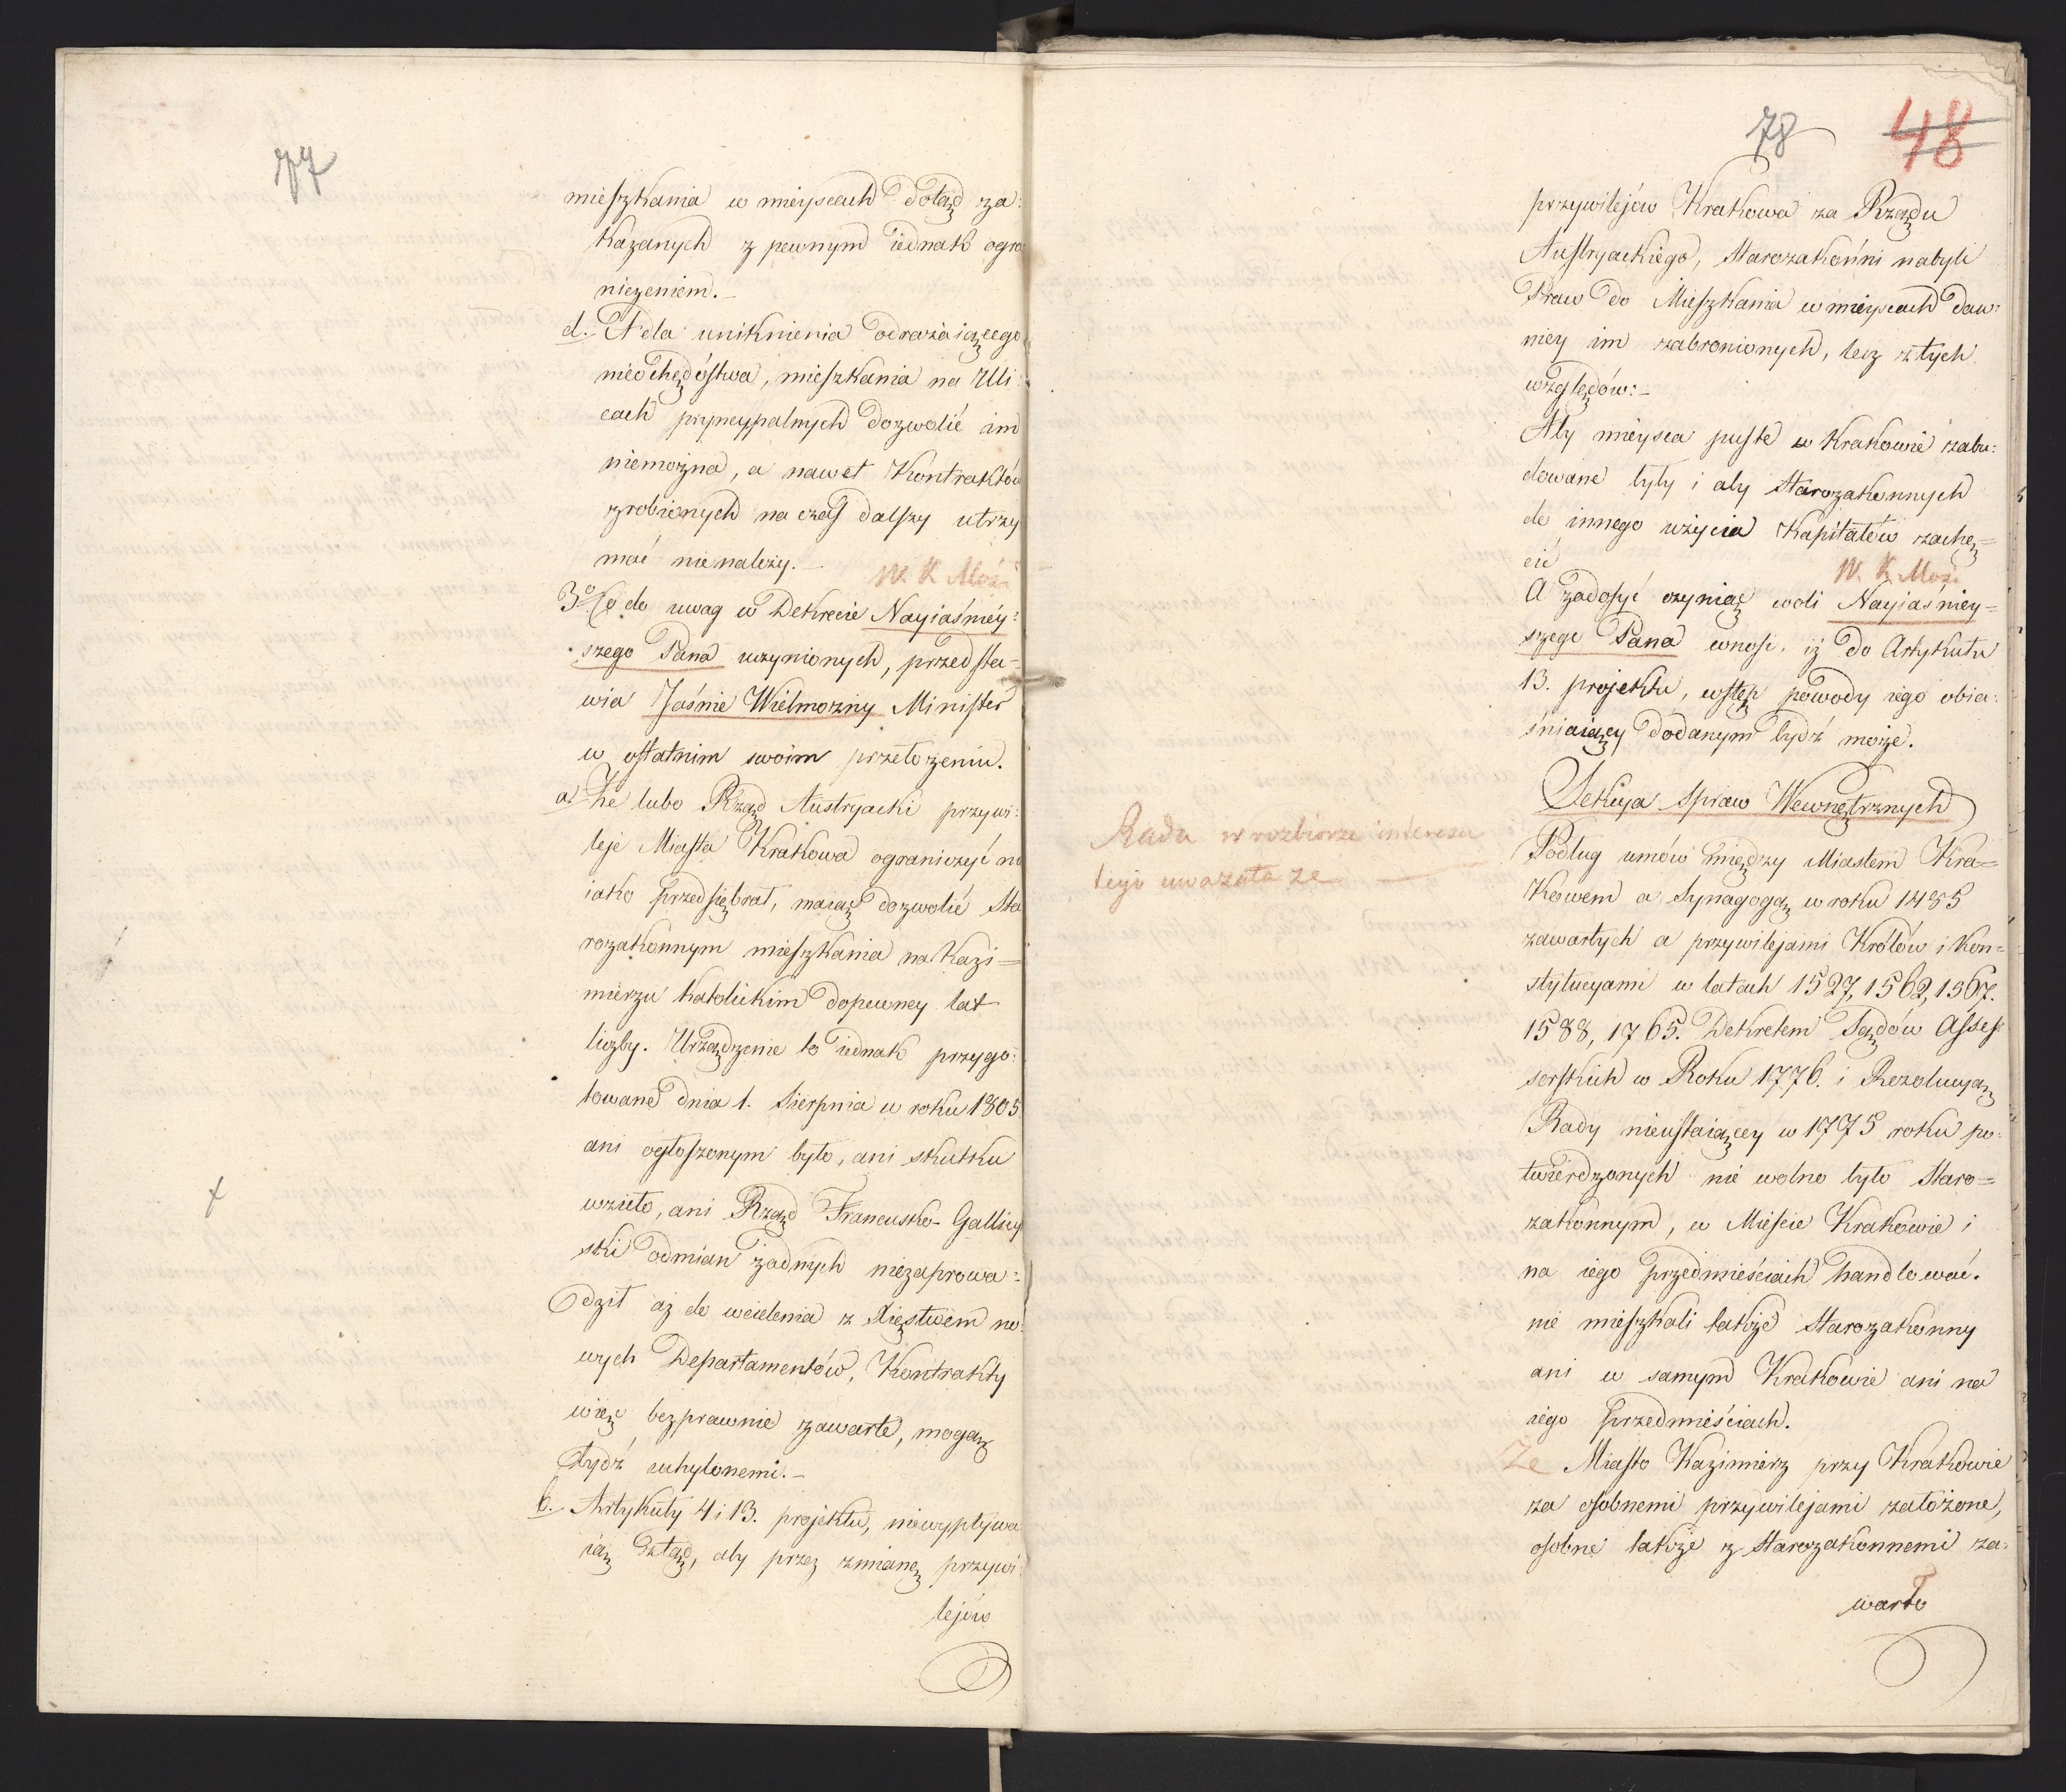 77
mieszkania w mieyscach dotąd za:
kazanych z pewnym iednak ogra
niczeniem.-
d. A dla uniknienia odrażaiącego
nieochędóstwa, mieszkania na Uli:
cach pryncypalnych dozwolić im
niemożna, a nawet Kontraktów
zrobionych na czas dalszy utrzy
mać nie należy.
W. K. Mości
3o Co do uwag w Dekrecie Nayiaśniéy:
szego Pana uczynionych, przedsta-
wia Jaśnie Wielmożny Minister
w ostatnim swoim przełożeniu.
a. Że lubo Rząd Austryacki przywi:
leje Miasta Krakowa ograniczyć nie
iako przedsiębrał, maiąc dozwolić Sta
rozakonnym mieszkania na Kazi=
mierzu Katolickim do pewney lat
liczby. Urządzenie to iednak przygo:
towane dnia 1. Sierpnia w roku 1805
ani ogłoszonym było, ani skutku
wzieło, ani Rząd Francusko-Gallicy
ski odmian żadnych niezaprowa:
dził aż do wcielenia z Xięstwem no:
wych Departamentów, Kontrakty
więc bezprawnie zawarte, mogą
bydź uchylonemi.-
b. Artykuły 4 i 13. projektu, niewypływa
ią ztąd, aby przez zmianę przywi
lejów
78 48
przywilejów Krakowa za Rządu
Austryackiego, Starozakonni nabyli
Praw do Mieszkania w mieyscach daw:
niey im zabronionych, lecz z tych
względów:-
Aby mieysca puste w Krakowie zabu:
dowane były i aby Starozakonnych
do innego użycia Kapitałów zachę=
cić
W. K. Mości
A zadosyć czyniąc woli Nayiaśniey=
szego Pana wnosi, iż do Artykułu
13. projektu, wstęp powody iego obia:
śniaiący dodanym bydź może.
Sekcya Spraw Wewnętrznych
Rada w rozbiorze interesu
tego uważała że
Podług umów między Miastem Kra=
kowem a Synagogą w roku 1485
zawartych a przywilejami Królów i Kon=
stytucyami w latach 1527, 1562, 1567.
1588, 1765. Dekretem Sądów Asses
sorskich w Roku 1776. i Rezolucyą
Rady nieustaiącey w 1775 roku po:
twierdzonych nie wolno było Staro=
zakonnym, w Mieście Krakowie i
na iego przedmieściach handlować.
nie mieszkali także Starozakonny
ani w samym Krakowie ani na
iego przedmieściach.
Że Miasto Kazimierz przy Krakowie
za osobnemi przywilejami założone,
osobne także z Starozakonnemi za:
warło